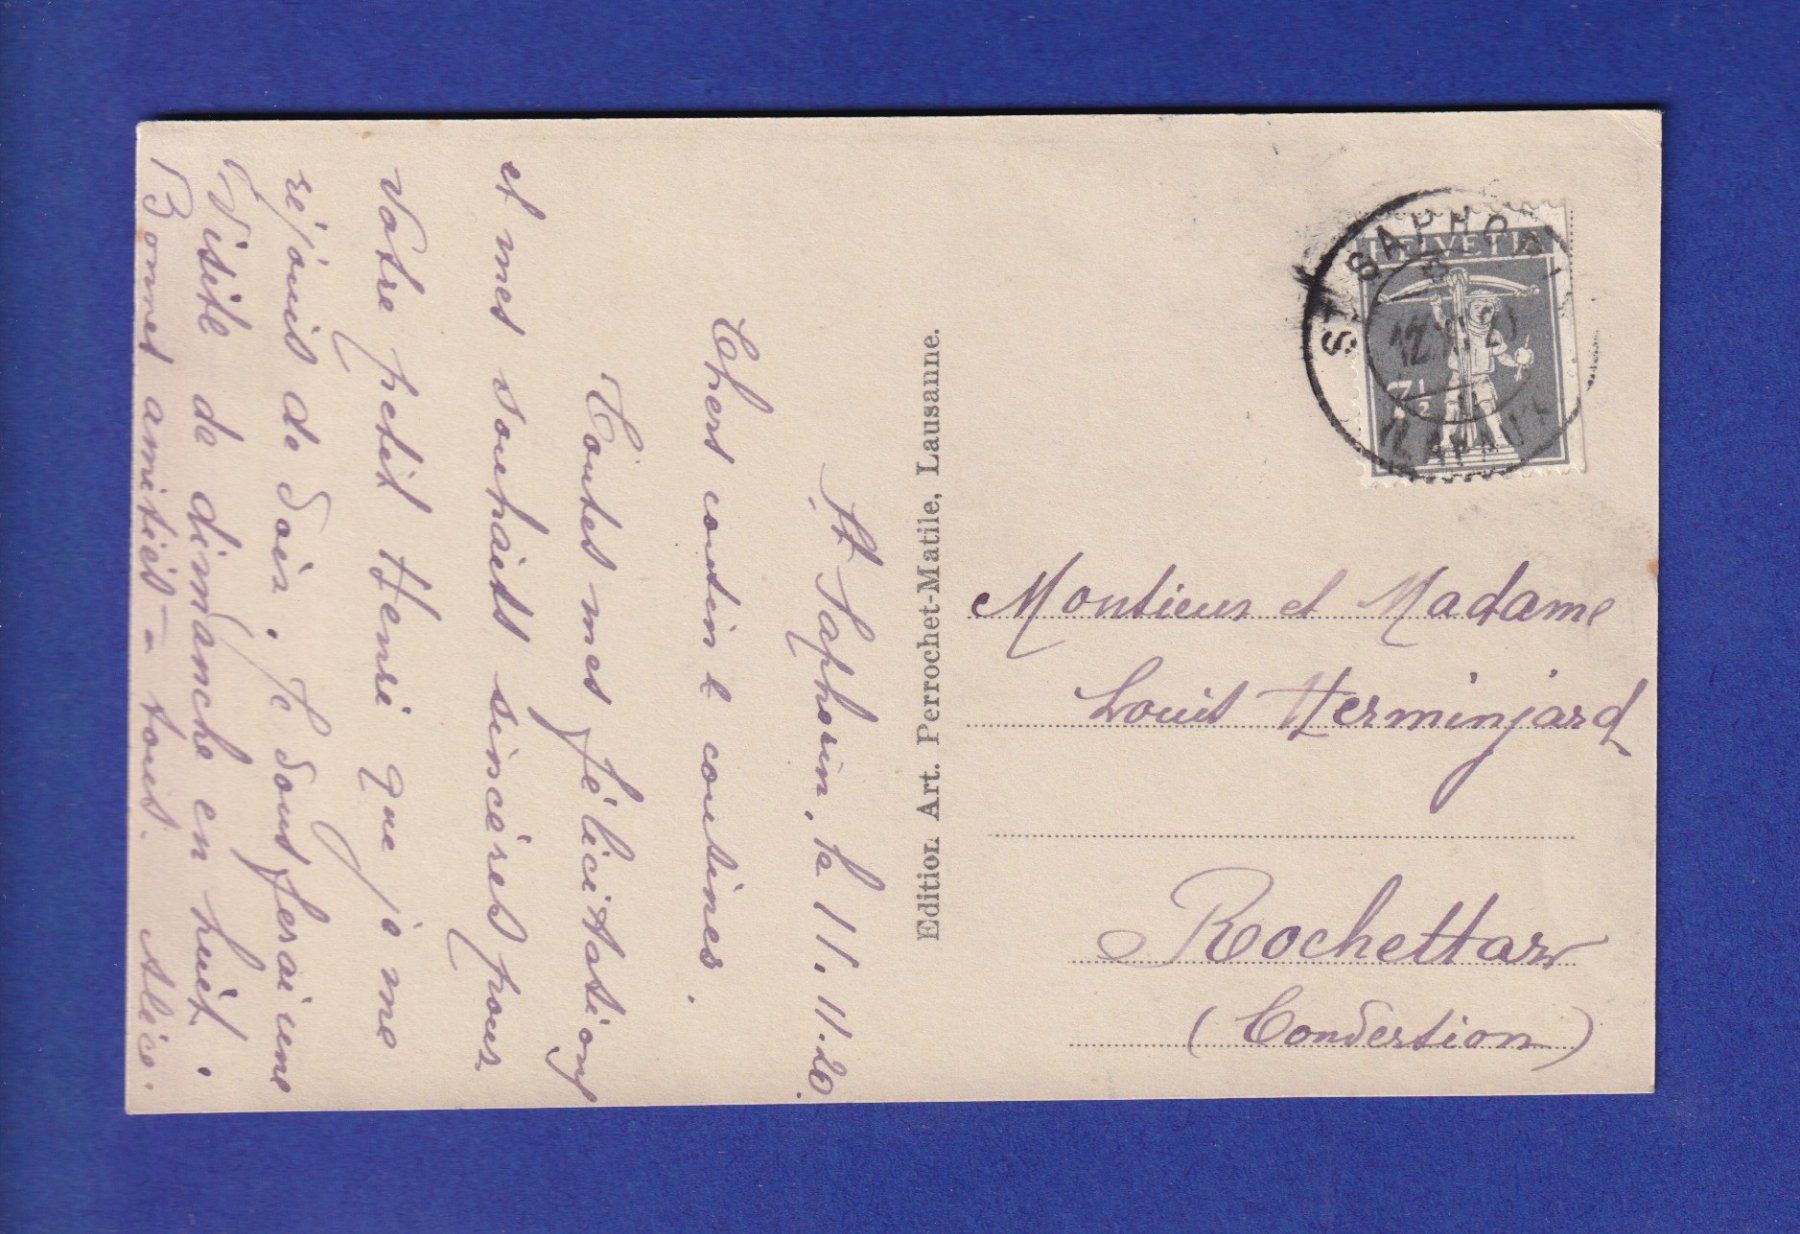 St. Saphorin, le 11. 11. 20.
Chers cousin & cousines.
Toutes mes félicitations
et mes souhaits sincères pour
votre petit Henri que je me
réjouis de voir. Je vous ferai une
visite de dimanche en huit.
Bonnes amitiés à tous. Alice.
Edition Art. Perrochet-Matile, Lausanne.
ST. SAPHORIN
LAVAUX
HELVETIA
7½
Monsieur et Madame
Louis Herminjard
Rochettaz
(Conversion)